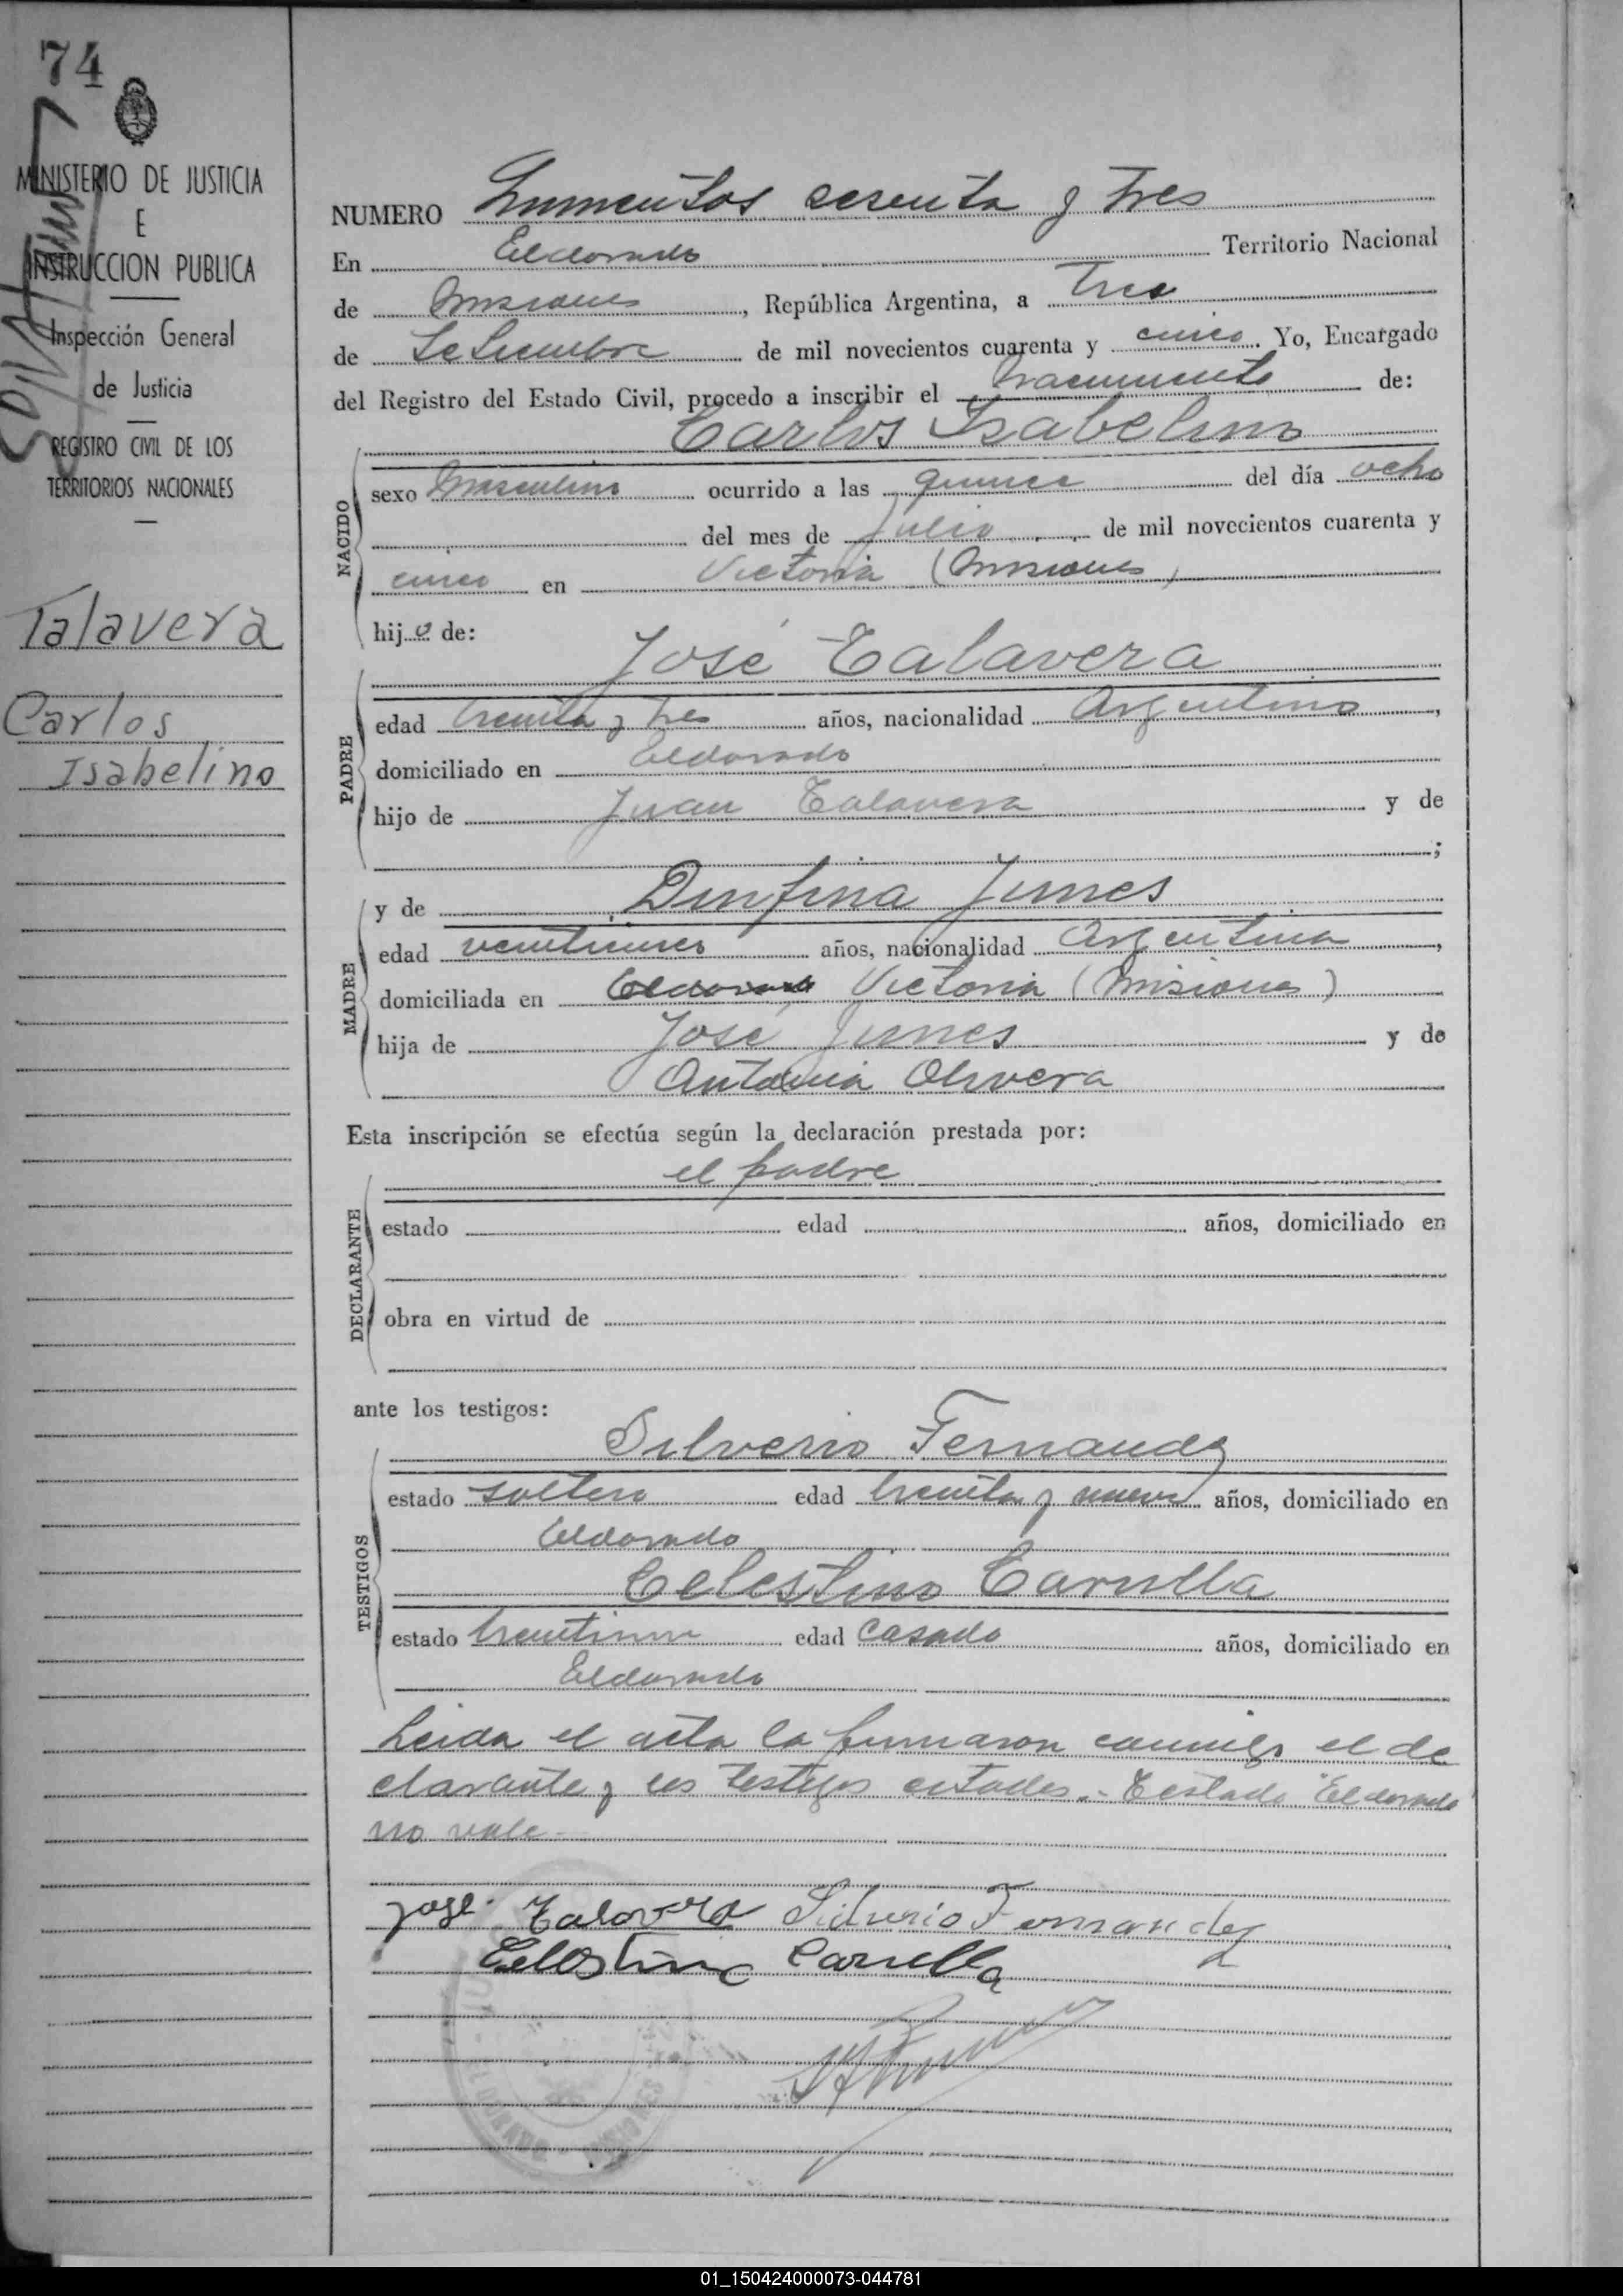 74
MINISTERIO DE JUSTICIA
E
INSTRUCCION PUBLICA
Inspección General
de Justicia
REGISTRO CIVIL DE LOS
TERRITORIOS NACIONALES
Talavera
Carlos
Isabelino
NUMERO sesenta y tres
En Eldorado Territorio Nacional
de Misiones, República Argentina, a tres
de Setiembre de mil novecientos cuarenta y cinco. Yo, Encargado
del Registro del Estado Civil, procedo a inscribir el nacimiento de:
Carlos Isabelino
NACIDO
sexo Masculino ocurrido a las quince del día ocho
del mes de julio de mil novecientos cuarenta y
cinco en Victoria (Misiones)
hijo de:
José Talavera
PADRE
edad treinta y tres años, nacionalidad Argentino,
domiciliado en Eldorado
hijo de Juan Talavera y de
;
y de Junes
MADRE
edad veinticinco años, nacionalidad Argentina,
domiciliada en Eldorado Victoria (Misiones)
hija de José Junes y de
Antonia Olivera
Esta inscripción se efectúa según la declaración prestada por:
el padre
DECLARANTE
estado edad años, domiciliado en
obra en virtud de
ante los testigos:
Silverio Fernandez
TESTIGOS
estado soltero edad treinta y nueve años, domiciliado en
Eldorado
Celestino Carrulla
estado edad casado años, domiciliado en
Eldorado
Leida el acta la firmaron conmigo el de
clarante y los testigos citados.- Testado "Eldorado"
no vale.-
José Talavera Silverio Fernandez
Celestino
01_150424000073-044781